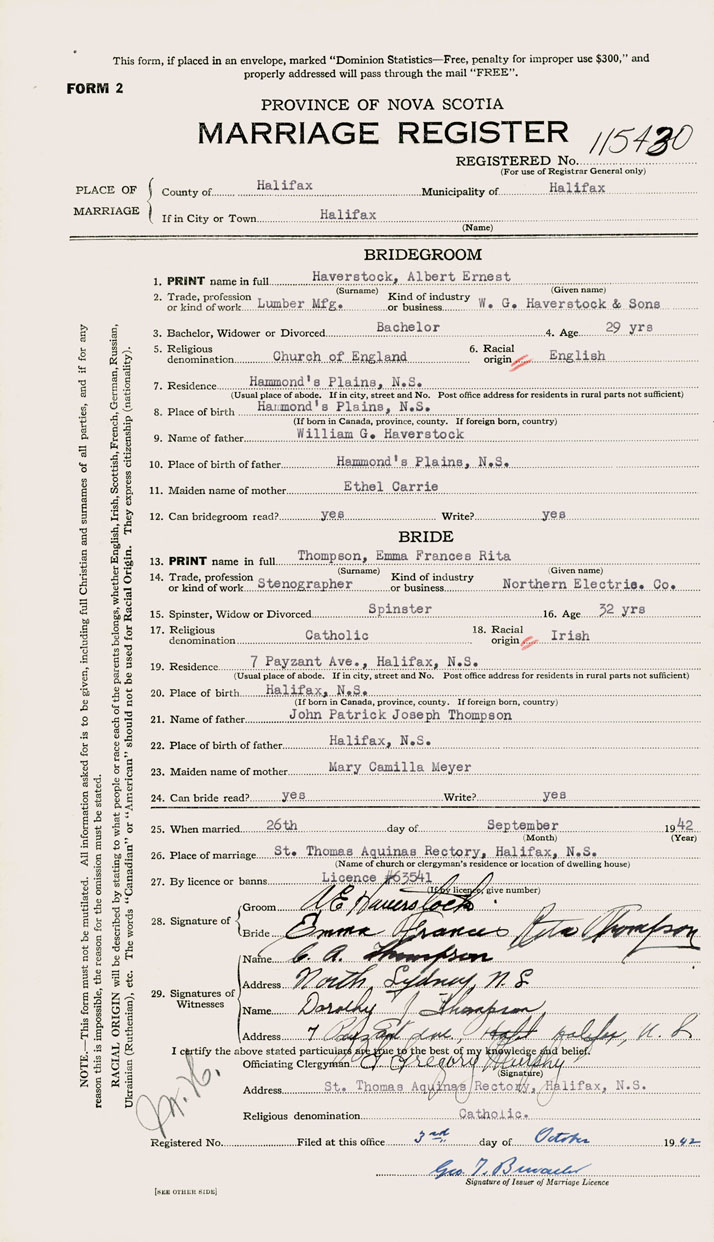 This form, if placed in an envelope, marked "Dominion Statistics—Free, penalty for improper use $300," and
properly addressed will pass through the mail "FREE".
FORM 2
PROVINCE OF NOVA SCOTIA
MARRIAGE REGISTER
REGISTERED No. 115430
(For use of Registrar General only)
PLACE OF MARRIAGE
County of Halifax Municipality of Halifax
If in City or Town Halifax
(Name)
BRIDEGROOM
1. PRINT name in full Haverstock, Albert Ernest
(Surname) (Given name)
2. Trade, profession or kind of work Lumber Mfg. Kind of industry or business W. G. Haverstock & Sons
3. Bachelor, Widower or Divorced Bachelor 4. Age 29 yrs
5. Religious denomination Church of England 6. Racial origin English
7. Residence Hammond's Plains, N.S.
(Usual place of abode. If in city, street and No. Post office address for residents in rural parts not sufficient)
8. Place of birth Hammond's Plains, N.S.
(If born in Canada, province, county. If foreign born, country)
9. Name of father William G. Haverstock
10. Place of birth of father Hammond's Plains, N.S.
11. Maiden name of mother Ethel Carrie
12. Can bridegroom read? yes Write? yes
BRIDE
13. PRINT name in full Thompson, Emma Frances Rita
(Surname) (Given name)
14. Trade, profession or kind of work Stenographer Kind of industry or business Northern Electric. Co.
15. Spinster, Widow or Divorced Spinster 16. Age 32 yrs
17. Religious denomination Catholic 18. Racial origin Irish
19. Residence 7 Payzant Ave., Halifax, N.S.
(Usual place of abode. If in city, street and No. Post office address for residents in rural parts not sufficient)
20. Place of birth Halifax, N.S.
(If born in Canada, province, county. If foreign born, country)
21. Name of father John Patrick Joseph Thompson
22. Place of birth of father Halifax, N.S.
23. Maiden name of mother Mary Camilla Meyer
24. Can bride read? yes Write? yes
25. When married 26th day of September 1942
(Month) (Year)
26. Place of marriage St. Thomas Aquinas Rectory, Halifax, N.S.
(Name of church or clergyman's residence or location of dwelling house)
27. By licence or banns Licence #63541
(If by licence, give number)
28. Signature of
Groom A E Haverstock
Bride Emma Frances Rita Thompson
29. Signatures of Witnesses
Name C. A. Thompson
Address North Sydney N S
Name Dorothy J Thompson
Address 7 Payzant Ave, Halifax, N. S
I certify the above stated particulars are true to the best of my knowledge and belief.
Officiating Clergyman J Gregory Murphy
(Signature)
Address St. Thomas Aquinas Rectory, Halifax, N.S.
Religious denomination Catholic.
Registered No. Filed at this office 3rd day of October 1942
Geo T.
Signature of Issuer of Marriage Licence
[SEE OTHER SIDE]
NOTE.—This form must not be mutilated. All information asked for is to be given, including full Christian and surnames of all parties, and if for any
reason this is impossible, the reason for the omission must be stated.
RACIAL ORIGIN will be described by stating to what people or race each of the parents belongs, whether English, Irish, Scottish, French, German, Russian,
Ukrainian (Ruthenian), etc. The words "Canadian" or "American" should not be used for Racial Origin. They express citizenship (nationality).